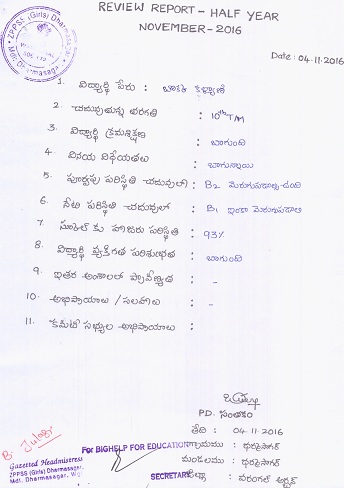 REVIEW REPORT - HALF YEAR
NOVEMBER - 2016
ZPPSS (Girls) Dharmasagar
Mdl. Dharmasagar
Date : 04.11.2016
1. విద్యార్థి పేరు : కళ్యాణి
2. చదువుతున్న తరగతి : 10th T/M
3. విద్యార్థి క్రమశిక్షణ : బాగుంది
4. వినయ విధేయతలు : బాగున్నాయి
5. పూర్వపు పరిస్థితి చదువులో : B2 మెరుగుపడాల్సి ఉంది
6. నేటి పరిస్థితి చదువులో : B1 ఇంకా మెరుగుపడాలి
7. స్కూల్ కు హాజరు పరిస్థితి : 93%
8. విద్యార్థి వ్యక్తిగత పరిశుభ్రత : బాగుంది
9. ఇతర అంశాలలో ప్రావీణ్యత : -
10. అభిప్రాయాలు / సలహాలు : -
11. కమిటీ సభ్యుల అభిప్రాయాలు :
P.D. సంతకం
తేది : 04.11.2016
For BIGHELP FOR EDUCATION
గ్రామము : ధర్మసాగర్
మండలము : ధర్మసాగర్
SECRETARY
జిల్లా : వరంగల్ అర్బన్
Gazetted Headmistress
ZPPSS (Girls) Dharmasagar,
Mdl. Dharmasagar,